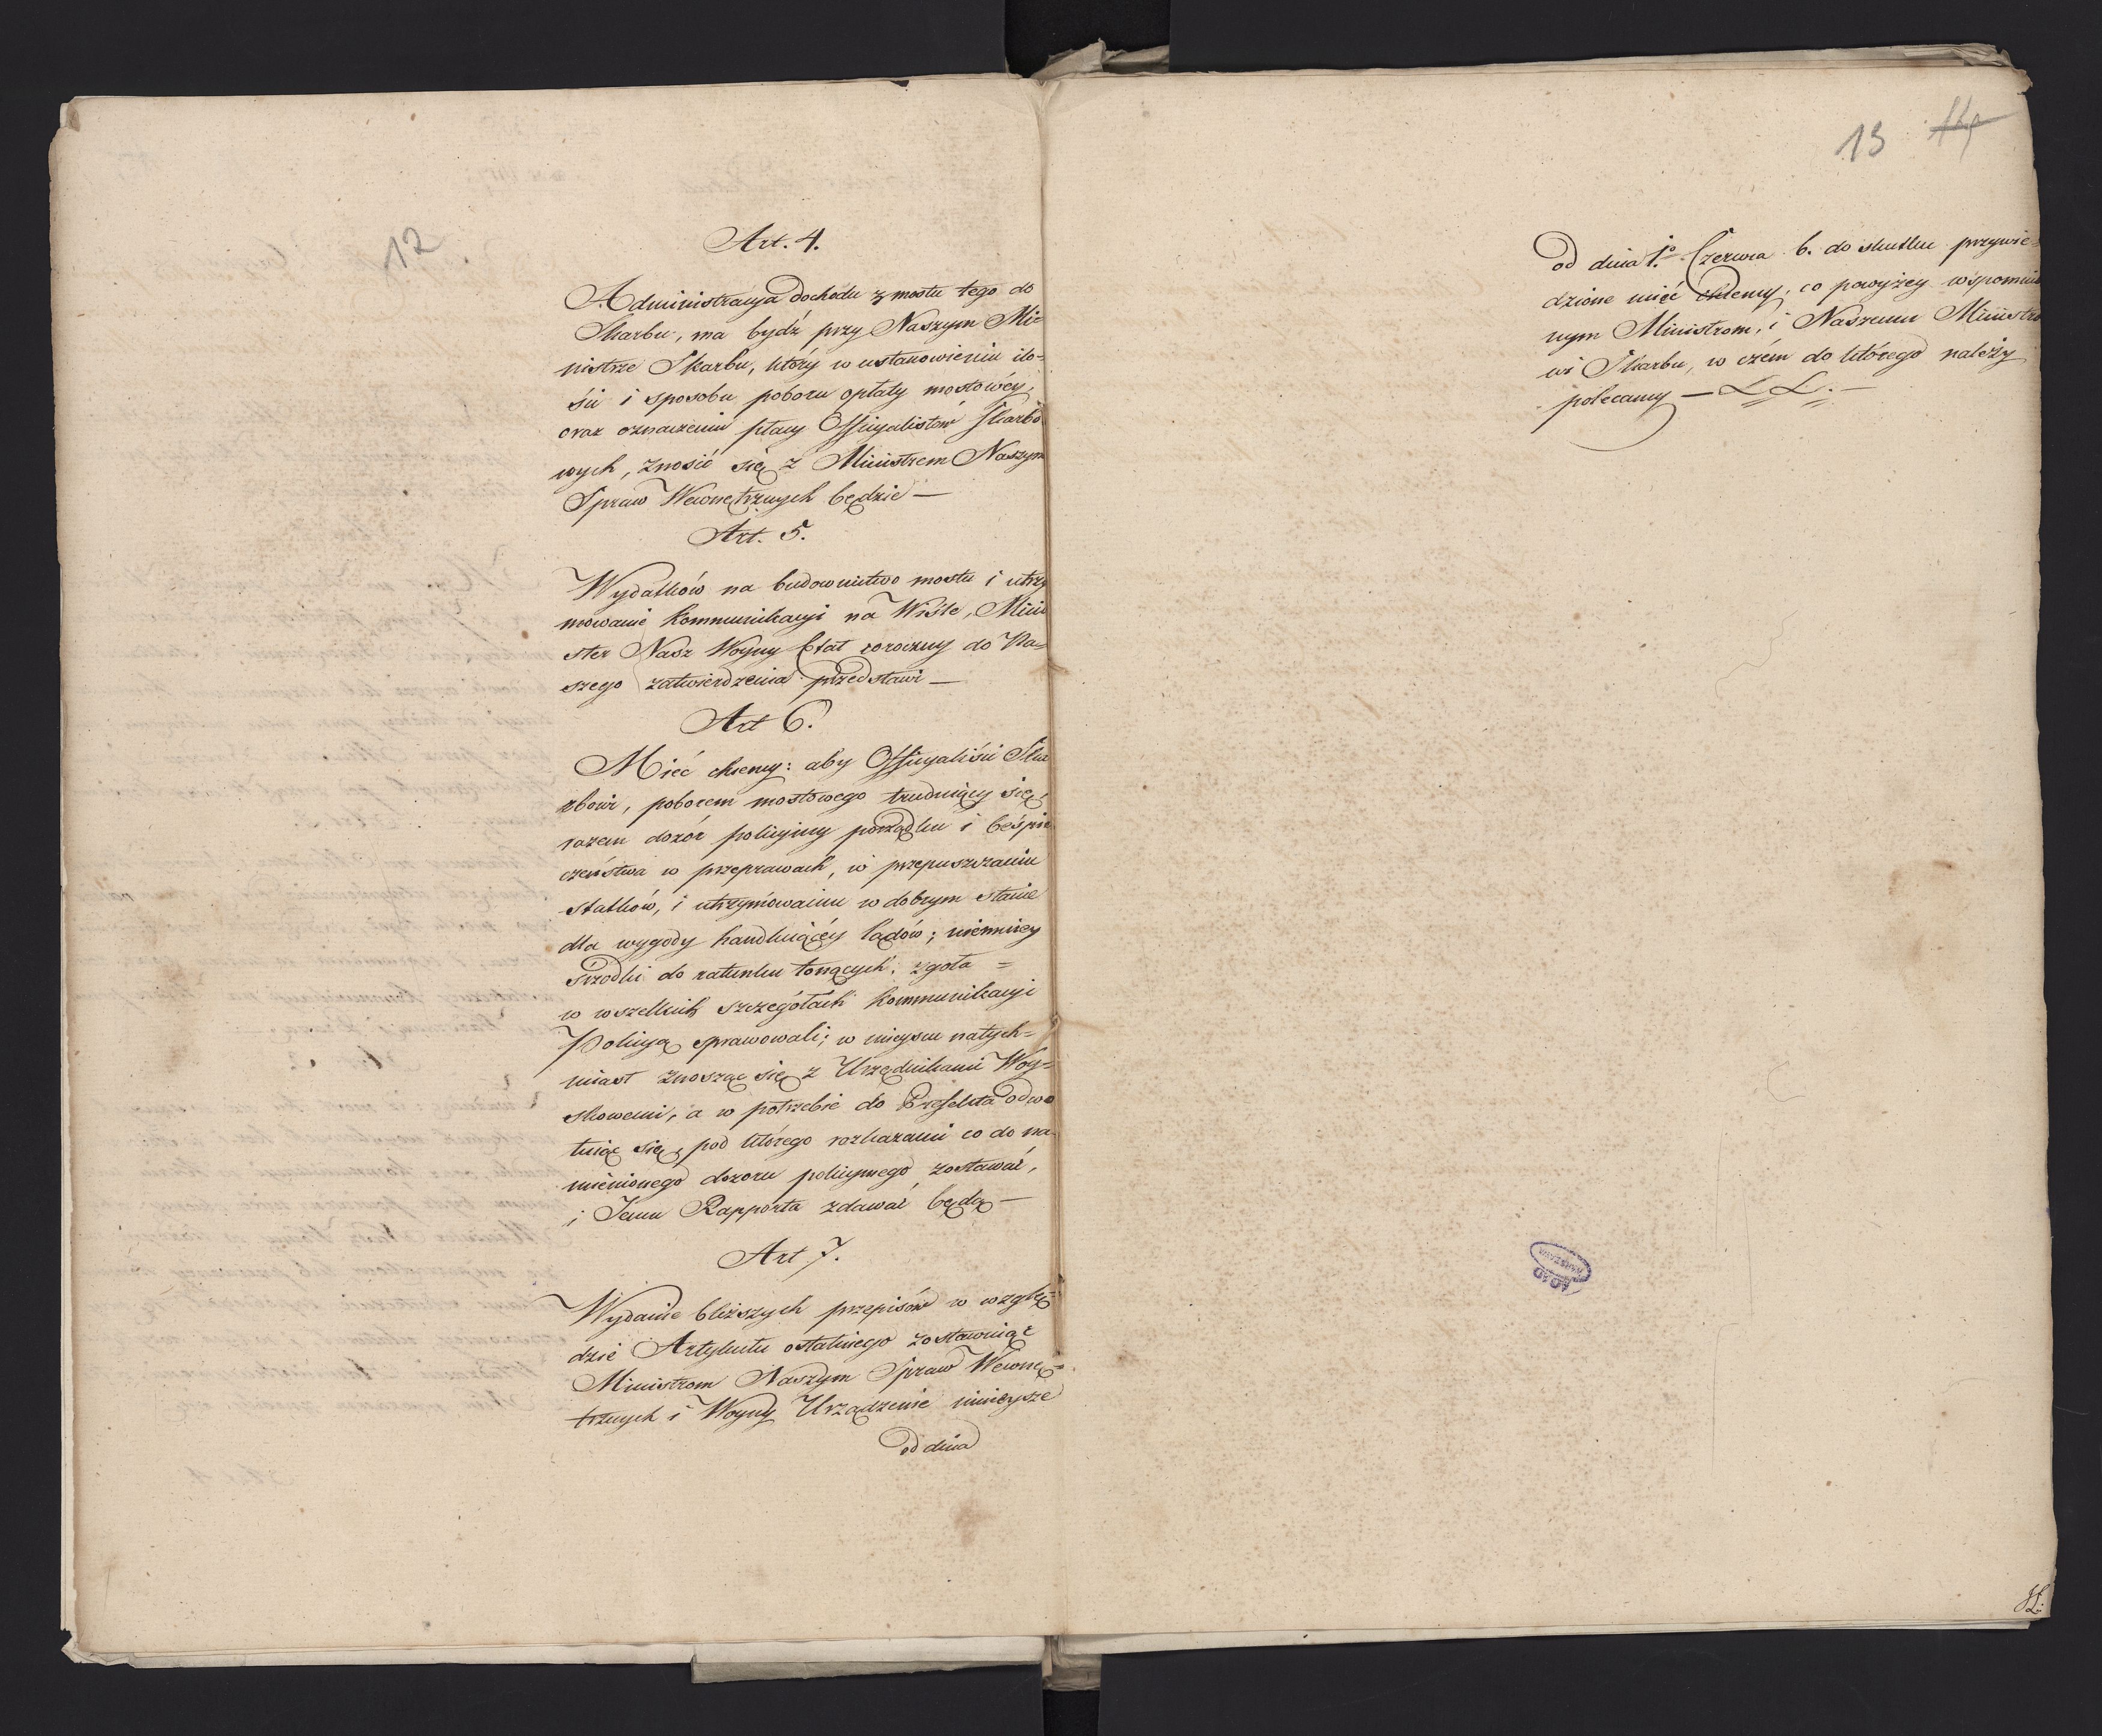 12
Art. 4.
Administracya dochodu z mostu tego do
Skarbu, ma bydź przy Naszym Mi=
nistrze Skarbu, który w ustanowieniu ilo=
ści i sposobu poboru opłaty mostowéy,
oraz oznaczeniu płacy Officyalistów Skarbo
wych, znosić się z Ministrem Naszym
Spraw Wewnętrznych będzie —
Art. 5.
Wydatków na budownictwo mostu i utrzy
mowanie kommunikacyi na Wiśle, Mini
ster Nasz Woyny Etat coroczny do Na=
szego zatwierdzenia przedstawi —
Art 6.
Mieć chcemy: aby Officyaliści Ska
rbowi, poborem mostowego trudniący się,
razem dozór policyiny porządku i beśpie
czeństwa w przeprawach, w przepuszczaniu
statków, i utrzymowaniu w dobrym stanie
dla wygody handluiącéy lądów; niemniey
środki do ratunku tonących; zgoła =
w wszelkich szczegółach kommunikacyi
Policyą sprawowali; w mieyscu natych=
miast znosząc się z Urzędnikami Woy=
skowemi, a w potrzebie do Prefekta odwo
łuiąc się, pod którego rozkazami co do na
mienionego dozoru policyinego zostawać,
i Jemu Rapporta zdawać będą —
Art 7.
Wydanie bliższych przepisów w wzglę=
dzie Artykułu ostatniego zostawuiąc
Ministrom Naszym Spraw Wewnę=
trznych i Woyny Urządzenie ninieysze
od dnia
13
od dnia 1.º Czerwca b. do skutku przywie=
dzione mieć chcemy, co powyżey wspomnio
nym Ministrom, i Naszemu Ministro
wi Skarbu, w czém do którego należy
polecamy —
AGAD
WARSZAWA